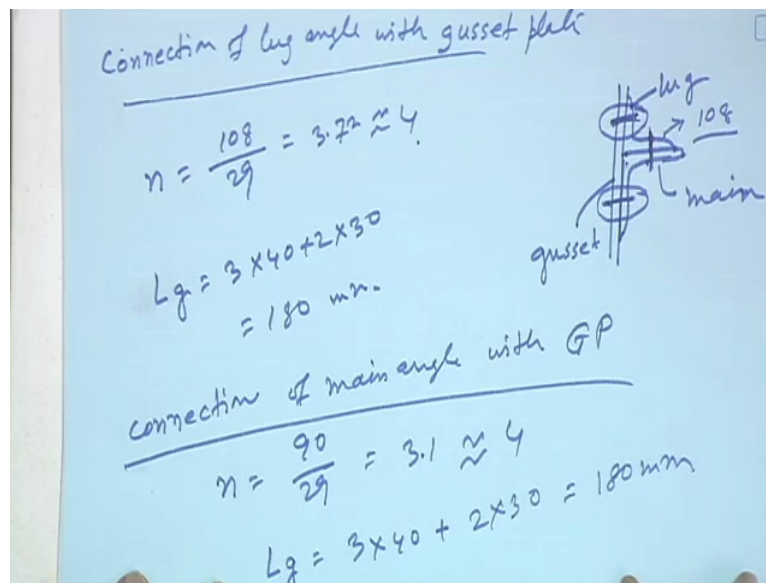 Connection of lug angle with gusset plate
n = 108/29 = 3.72 ≈ 4.
Lg = 3×40+2×30
= 180 mm.
lug
108
main
gusset
connection of main angle with GP
n = 90/29 = 3.1 ≈ 4
Lg = 3×40 + 2×30 = 180 mm